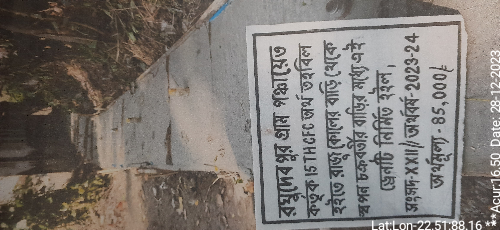 রঘুদেবপুর গ্রাম পঞ্চায়েত
কর্তৃক 15THCFC অর্থ তহবিল
হইতে রাজু কোলের বাড়ি থেকে
স্বপন চক্রবর্তীর বাড়ির মধ্যে এই
ড্রেনটি নির্মিত হইল,
সংসদ-XXII/ অর্থবর্ষ-2023-24
অর্থমূল্য - 85,000/
Lat:Lon- 22.51:88.16